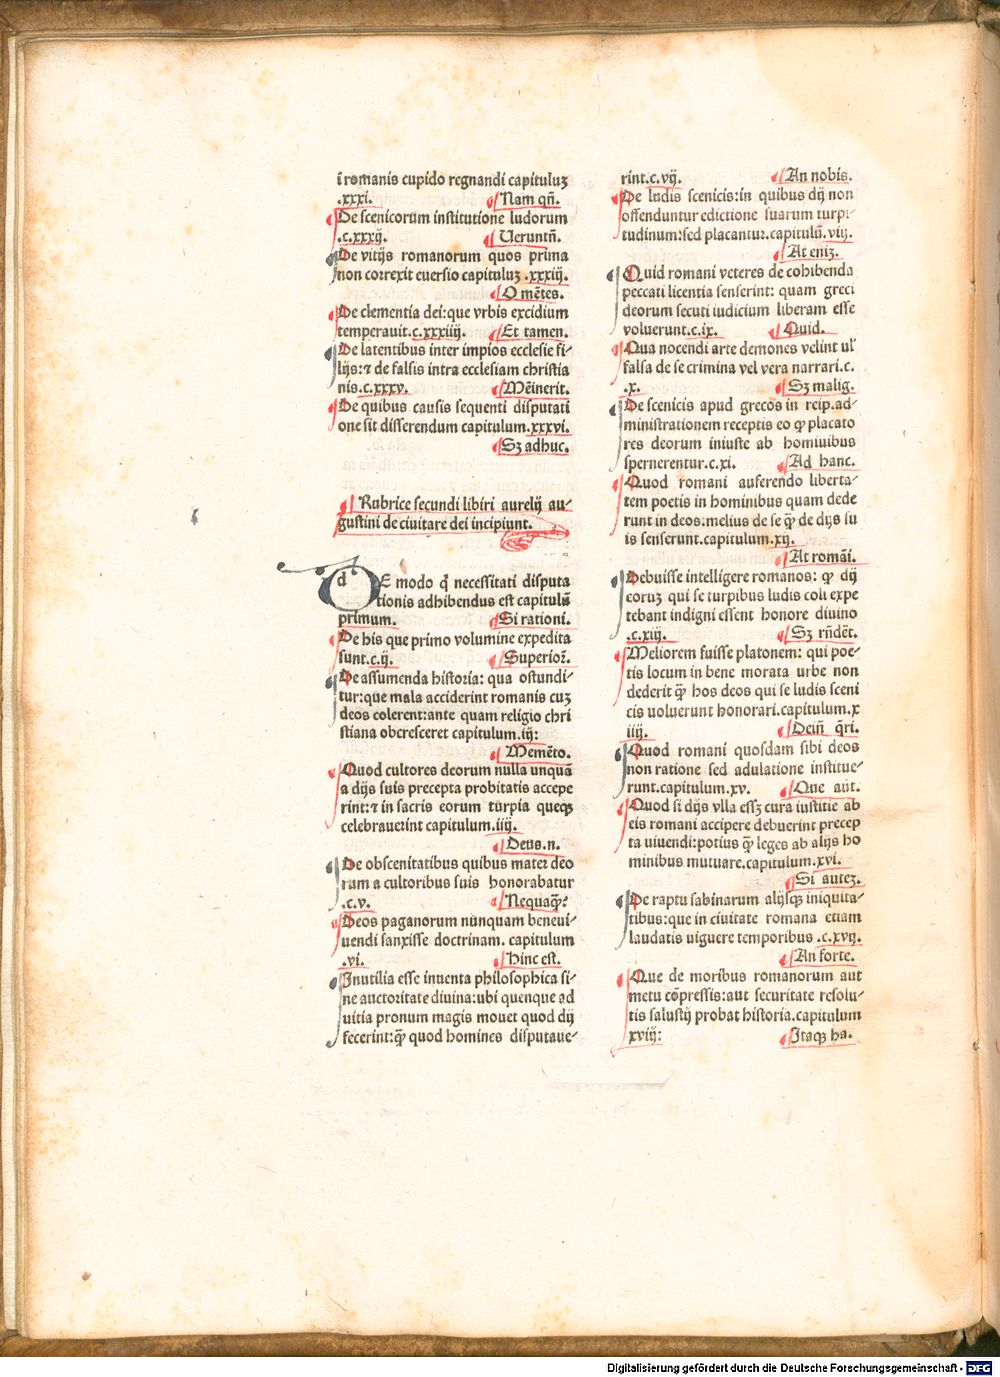 ī romanis cupido regnandi capituluꝫ
.xxxi. Nam qñ.
De scenicorum institutione ludorum
.c.xxxij. Ueruntñ.
De vitijs romanorum quos prima
non correxit euersio capituluꝫ .xxxiij.
O mētes.
De clementia dei:que vrbis excidium
temperauit.c.xxxiiij. Et tamen.
De latentibus inter impios ecclesie fi-
lijs:⁊ de falsis intra ecclesiam christia
nis.c.xxxv. Mēinerit.
De quibus causis sequenti disputati
one sit disserendum capitulum.xxxvi.
Sꝫ adhuc.
Rubrice secundi libiri aurelij au-
gustini de ciuitare dei incipiunt.
dE modo q̄ necessitati disputa
tionis adhibendus est capitulū
primum. Si rationi.
De his que primo volumine expedita
sunt.c.ij. Superioꝛ.
De assumenda historia: qua ostundi-
tur:que mala acciderint romanis cuꝫ
deos colerent:ante quam religio chri
stiana obcresceret capitulum.iij:
Memēto.
Quod cultores deorum nulla unquā
a dijs suis precepta probitatis accepe
rint:⁊ in sacris eorum turpia queqꝫ
celebrauerint capitulum.iiij.
Deus.n.
De obscenitatibus quibus mater deo
rum a cultoribus suis honorabatur
.c.v. Nequaꝙ̄?
Deos paganorum nunquam beneui-
uendi sanxisse doctrinam. capitulum
.vi. Hinc est.
Inutilia esse inuenta philosophica si-
ne auctoritate diuina:ubi quenque ad
uitia pronum magis mouet quod dij
fecerint:ꝙ̄ quod homines disputaue-
rint.c.vij. An nobis.
De ludis scenicis:in quibus dij non
offenduntur edictione suarum turpi-
tudinum:sed placantur.capitulū.viij.
At eniꝫ.
Quid romani veteres de cohibenda
peccati licentia senserint: quam greci
deorum secuti iudicium liberam esse
voluerunt.c.ix. Quid.
Qua nocendi arte demones velint ul'
falsa de se crimina vel vera narrari.c.
.x. Sꝫ malig.
De scenicis apud grecos in reip.ad-
ministrationem receptis eo ꝙ placato
res deorum iniuste ab homiuibus
spernerentur.c.xi. Ad hanc.
Quod romani auferendo liberta-
tem poetis in hominibus quam dede
runt in deos:melius de se ꝙ̄ de dijs su
is senserunt.capitulum.xij.
At romāi.
Debuisse intelligere romanos: ꝙ dij
eoruꝫ qui se turpibus ludis coli expe
tebant indigni essent honore diuino
.c.xiij. Sꝫ rn̄dēt.
Meliorem fuisse platonem: qui poe-
tis locum in bene morata urbe non
dederit ꝙ̄ hos deos qui se ludis sceni
cis uoluerunt honorari.capitulum.x
iiij. Dein̄ q̄ri.
Quod romani quosdam sibi deos
non ratione sed adulatione institue-
runt.capitulum.xv. Que aūt.
Quod si dijs vlla essꝫ cura iustitie ab
eis romani accipere debuerint precep
ta uiuendi:potius ꝙ̄ leges ab alijs ho
minibus mutuare.capitulum.xvi.
Si auteꝫ.
De raptu sabinarum alijsqꝫ iniquita-
tibus:que in ciuitate romana etiam
laudatis uiguere temporibus .c.xvij.
An forte.
Que de moribus romanorum aut
metu cōpressis:aut securitate resolu-
tis salustij probat historia.capitulum
xviij: Itaqꝫ ha.
Digitalisierung gefördert durch die Deutsche Forschungsgemeinschaft - DFG